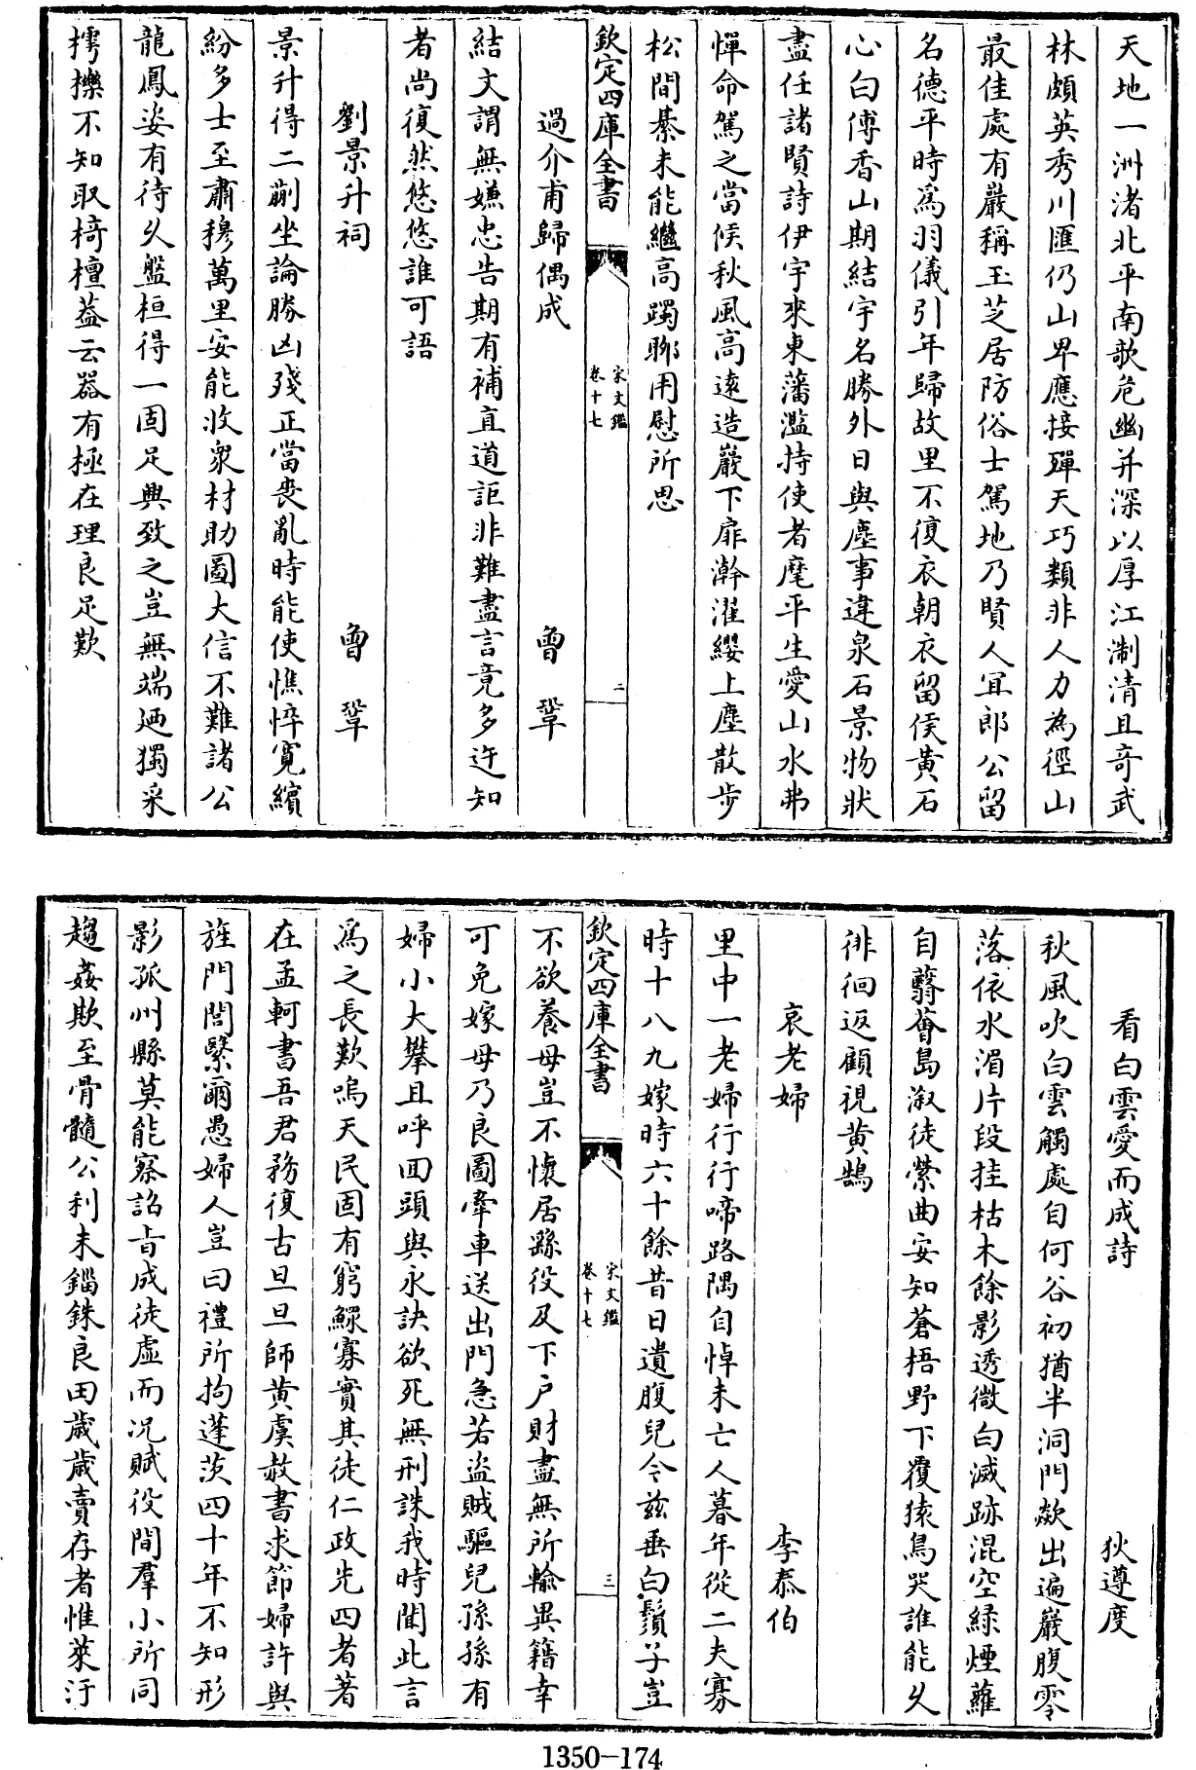 天地一洲渚北平南歌危幽并深以厚江淛清且竒武
林頗英秀川匯仍山畀應接殫天巧類非人力為徑山
最佳處有巖稱玉芝居防俗士駕地乃賢人宜郎公留
名德平時爲羽儀引年歸故里不復衣朝衣留侯黄石
心白傅香山期結宇名勝外日與塵事違泉石景物狀
盡任諸賢詩伊宇來東藩濫持使者麾平生愛山水弗
憚命駕之當俟秋風高逺造巖下扉澣濯纓上塵散步
松間綦未能繼高躅聊用慰所思
欽定四庫全書
宋文鑑
卷十七
二
過介甫歸偶成 曾鞏
結交謂無嫌忠告期有補直道詎非難盡言竟多迕知
者尚復然悠悠誰可語
劉景升祠 曾鞏
景升得二蒯坐論勝凶殘正當喪亂時能使憔悴寛繽
紛多士至肅穆萬里安能收衆材助圖大信不難諸公
龍鳳姿有待乆盤桓得一固足興致之豈無端廼獨采
摴櫟不知取椅檀葢云器有極在理良足歎
看白雲愛而成詩 狄遵度
秋風吹白雲觸處自何谷初猶半洞門歘出遍巖腹零
落依水湄片段挂枯木餘影透微白滅跡混空緑煙蘿
自翳薈島溆徒縈曲安知蒼梧野下覆猿鳥哭誰能乆
徘徊返顧視黄鵠
哀老婦 李泰伯
里中一老婦行行啼路隅自悼未亡人暮年從二夫寡
時十八九嫁時六十餘昔日遺腹兒今兹垂白鬚子豈
欽定四庫全書
宋文鑑
卷十七
三
不欲養母豈不懷居繇役及下户財盡無所輸異籍幸
可免嫁母乃良圖牽車送出門急若盗賊驅兒孫孫有
婦小大攀且呼回頭與永訣欲死無刑誅我時聞此言
爲之長歎嗚天民固有窮鰥寡實其徒仁政先四者著
在孟軻書吾君務復古旦旦師黄虞赦書求節婦許與
旌門閭繄爾愚婦人豈曰禮所拘蓬茨四十年不知形
影孤州縣莫能察詔㫖成徒虚而况賦役間羣小所同
趨姦欺至骨髓公利未錙銖良田歳歳賣存者惟萊汙
1350-174